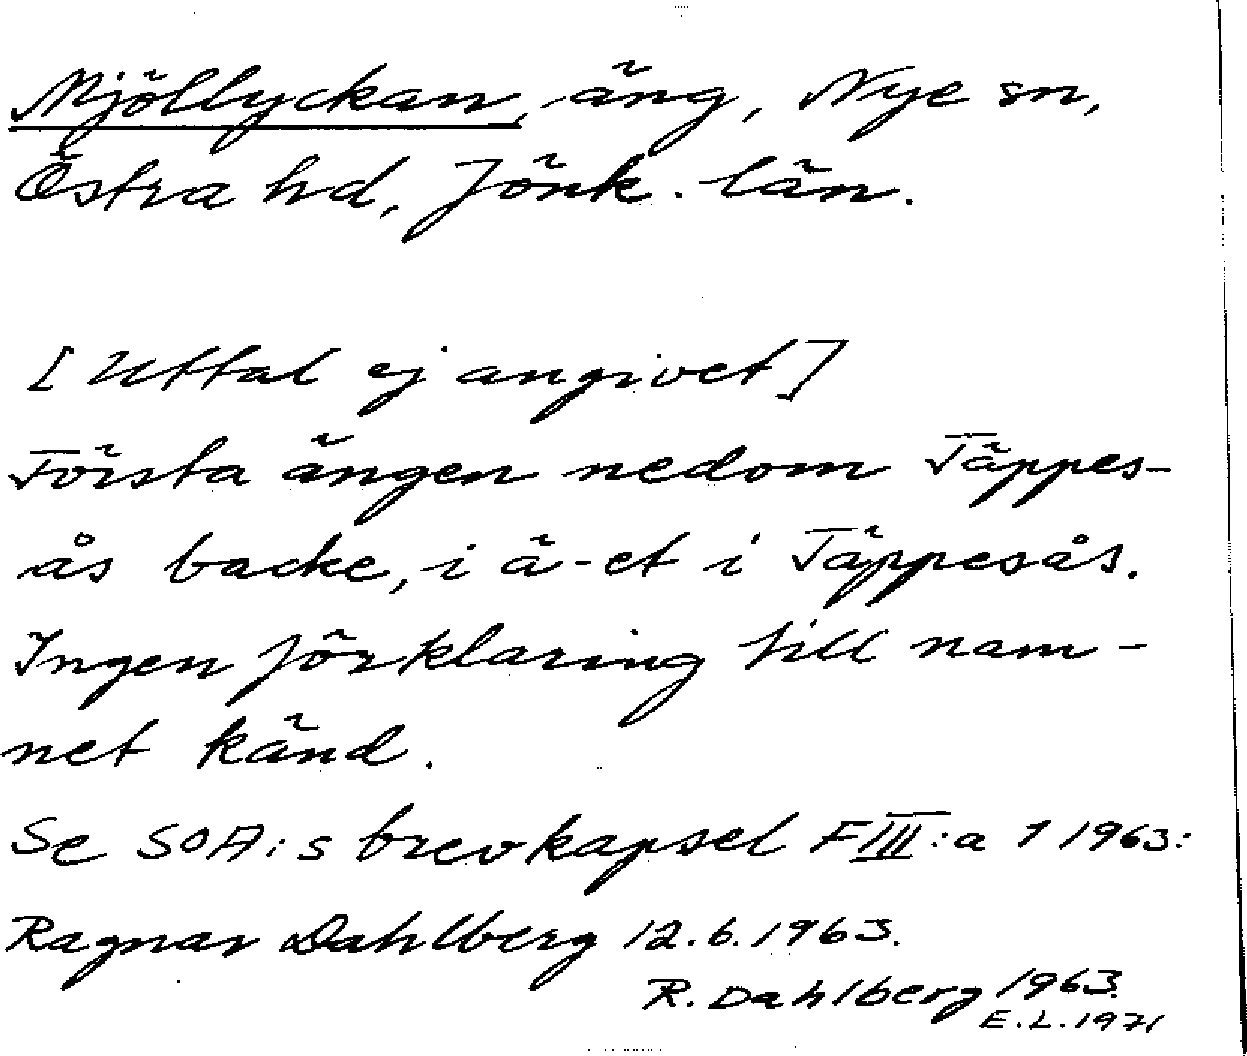 Mjöllyckan, äng, Nye sn,
Östra hd, Jönk. län.
[Uttal ej angivet]
Första ängen nedom Täppes-
ås backe, i ä-et i Täppesås.
Ingen förklaring till nam-
net känd.
Se SOA:s brevkapsel FIII:a 1 1963:
Ragnar Dahlberg 12.6.1963.
R. Dahlberg 1963.
E.L. 1971